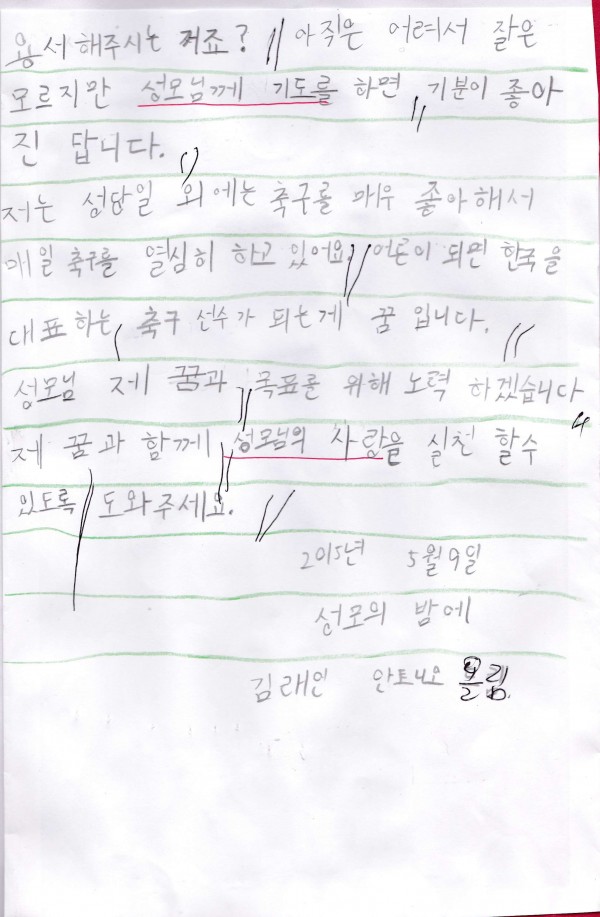 용서해주시는 거죠? 아직은 어려서 잘은
모르지만 성모님께 기도를 하면 기분이 좋아
진 답니다.
저는 성당일 외에는 축구를 매우 좋아해서
매일 축구를 열심히 하고 있어요. 어른이 되면 한국을
대표하는 축구 선수가 되는게 꿈 입니다.
성모님 제 꿈과 목표를 위해 노력 하겠습니다
제 꿈과 함께 성모님의 사랑을 실천 할수
있도록 도와주세요.
2015년 5월9일
성모의 밤에
김래인 안토니오 올림